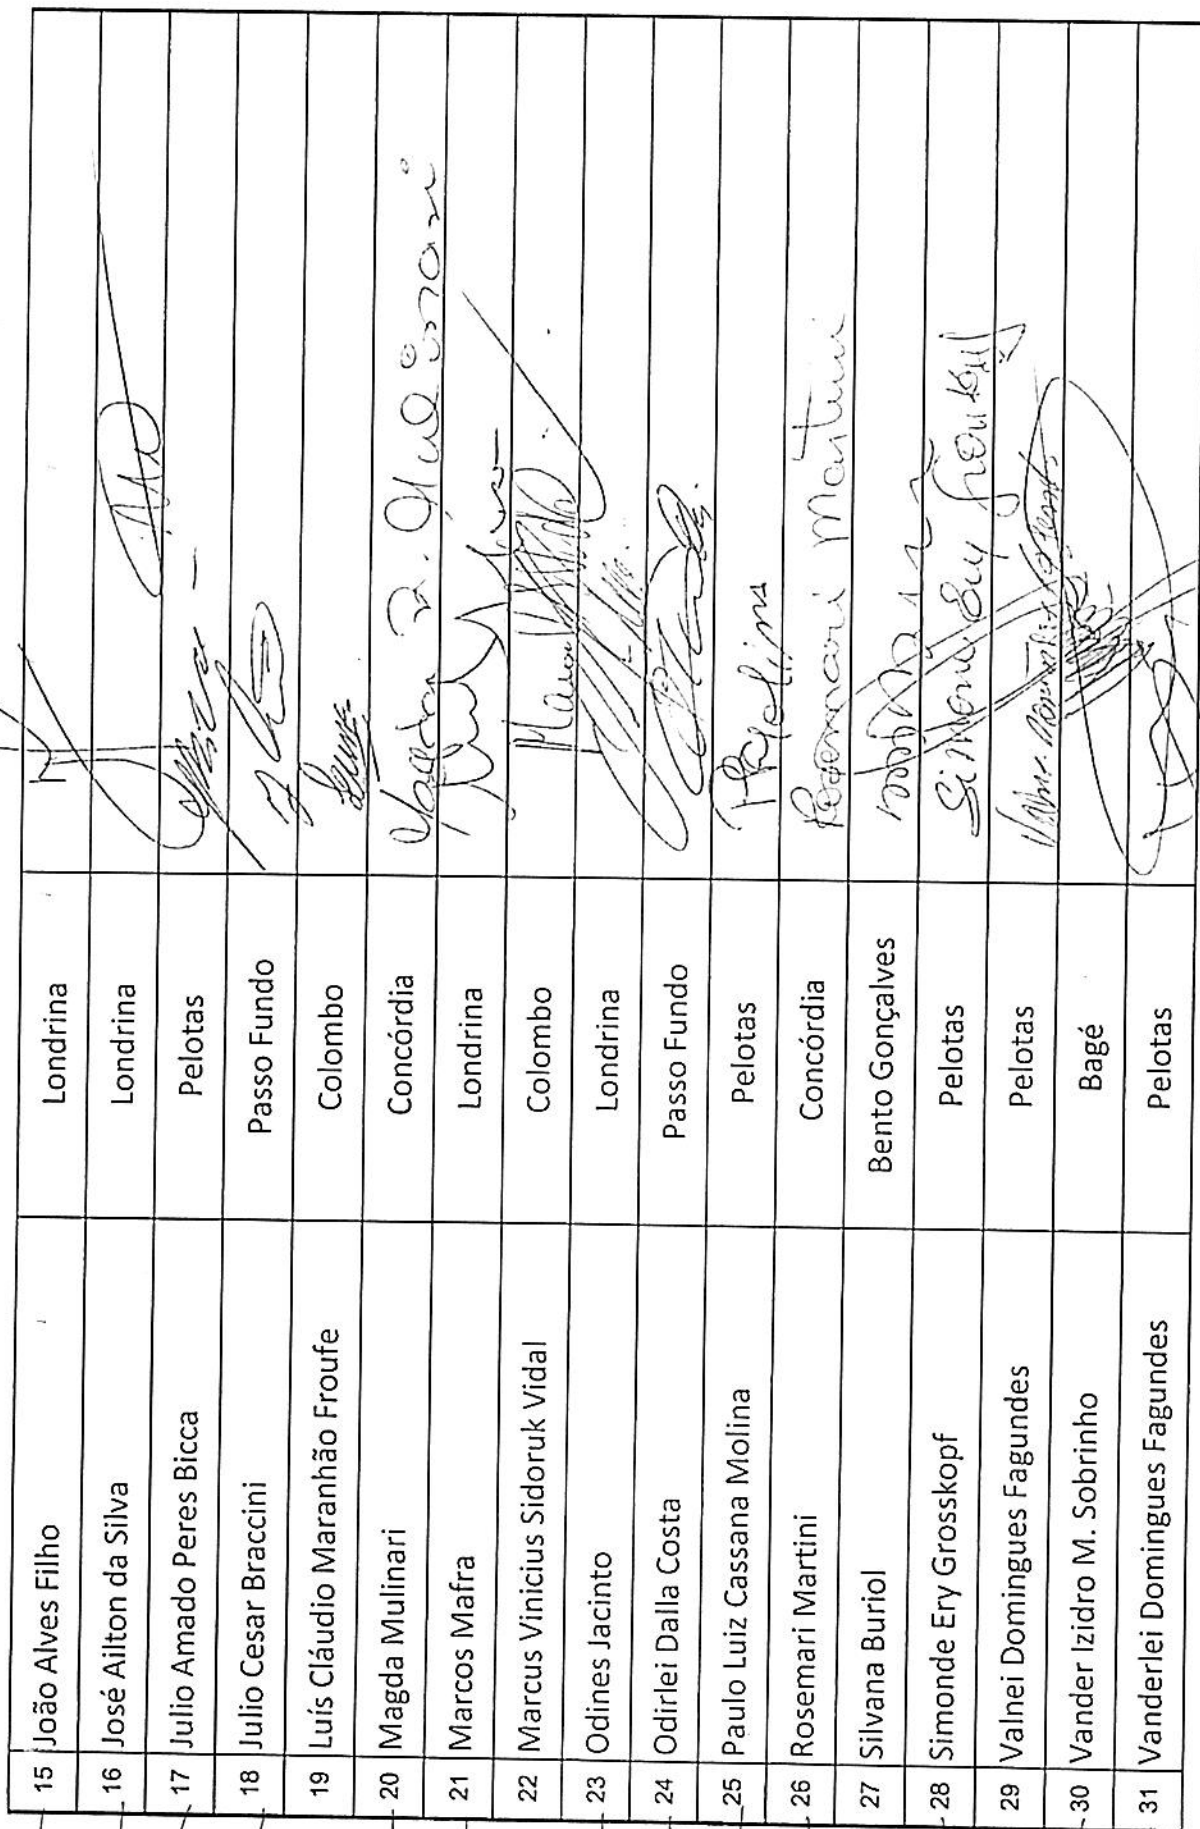 15 João Alves Filho Londrina
16 José Ailton da Silva Londrina
17 Julio Amado Peres Bicca Pelotas
18 Julio Cesar Braccini Passo Fundo
19 Luís Cláudio Maranhão Froufe Colombo
20 Magda Mulinari Concórdia Magda R. Mulinari
21 Marcos Mafra Londrina
22 Marcus Vinicius Sidoruk Vidal Colombo
23 Odines Jacinto Londrina
24 Odirlei Dalla Costa Passo Fundo
25 Paulo Luiz Cassana Molina Pelotas
26 Rosemari Martini Concórdia Rosemari Martini
27 Silvana Buriol Bento Gonçalves
28 Simonde Ery Grosskopf Pelotas Simonde Ery Grosskopf
29 Valnei Domingues Fagundes Pelotas
30 Vander Izidro M. Sobrinho Bagé
31 Vanderlei Domingues Fagundes Pelotas